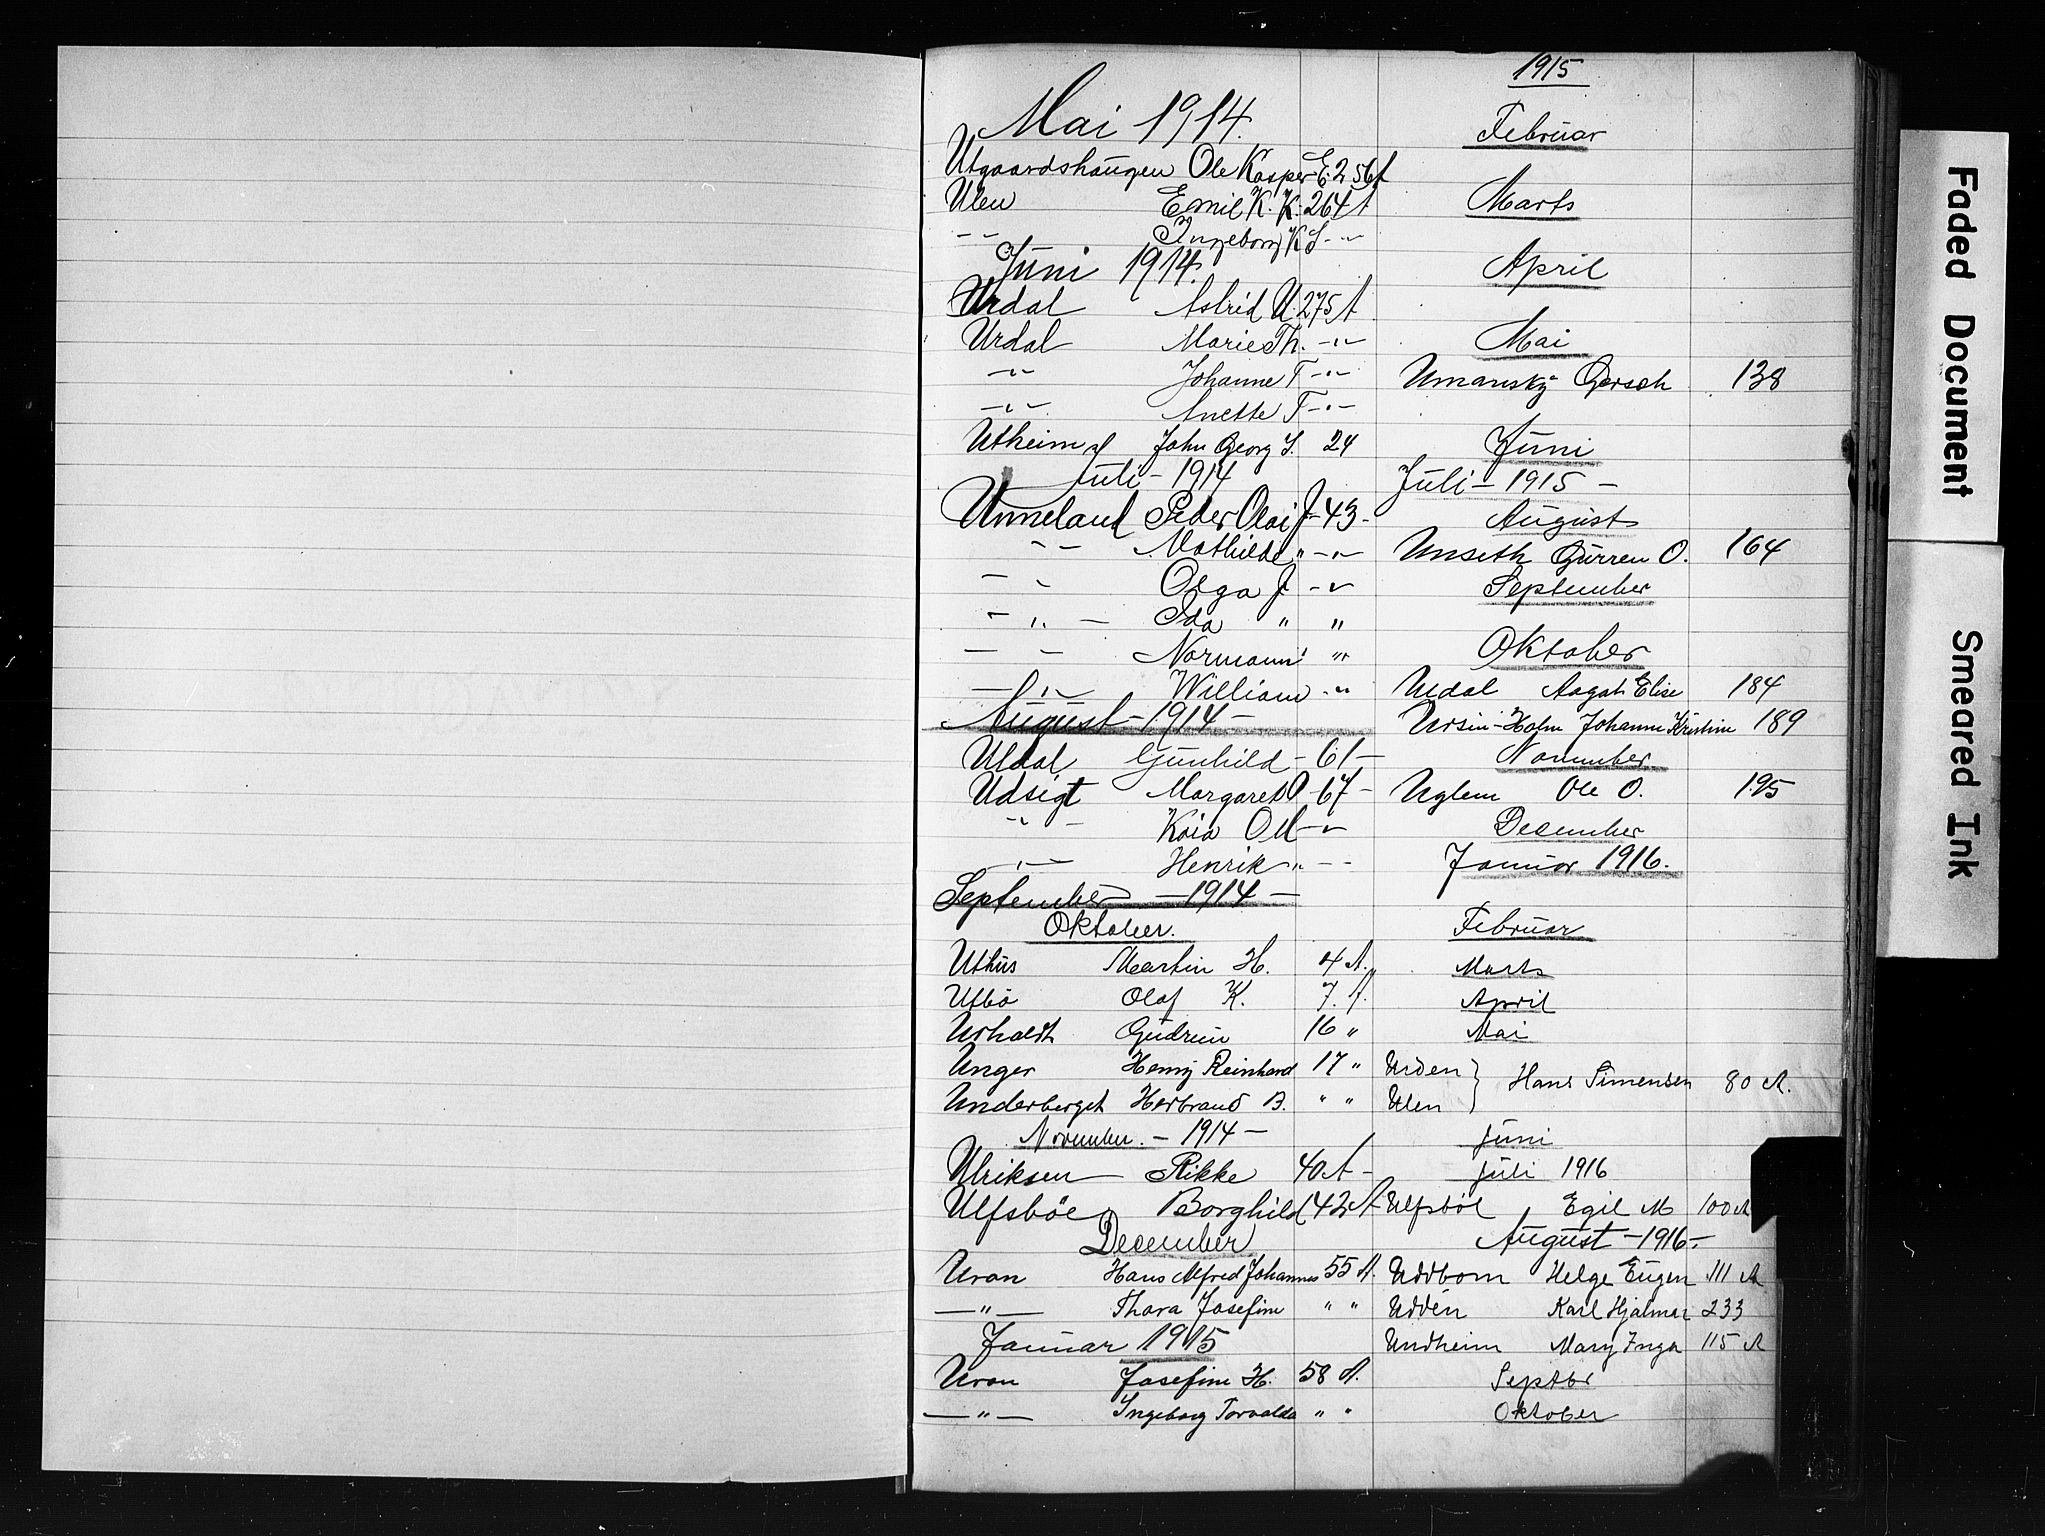 Mai 1914.
Utgaardshaugen Ole Kasper E. 256 A
Ulen Emil K. K. 264 A
-"- Ingeborg K S -"-
Juni 1914.
Urdal Astrid U. 275 A
Urdal Marie Th. -"-
-"- Johanne T -"-
-"- Anette T -"-
Utheim John Georg S. 24
Juli - 1914
Unneland Peder Olai J - 43 -
-"- Mathilde " -"-
-"- Olga J -"-
-"- Ida " "
- - Normann " "
-"- William -"-
August - 1914 -
Uldal Gunhild - 61 -
Udsigt Margaret O - 67 -
-"- Kaia O M -"-
-"- Henrik " - -
September - 1914 -
Oktober.
Uthus Martin H. 4 A.
Utbö Olaf K. 7. A.
Urholdt Gudrun 16 "
Unger Henry Reinhard 17 "
Underberget Herbrand B. " "
November. - 1914 -
Ulriksen Rikke 40 A -
Ulfsböe Borghild 42 A
December
Uron Hans Alfred Johannes 55 A.
-"- Thora Josefine " "
Januar 1915
Uron Josefine H. 58 A.
-"- Ingeborg Torvalda " "
1915
Februar
Marts
April
Mai
Umansky Gersch 138
Juni
Juli - 1915 -
August
Unseth Gurren O. 164
September
Oktober
Uldal Aagat Elise 184
Ursin-Holm Johanne Kristine 189
November.
Uglem Ole O. 195
Desember
Januar 1916.
Februar
Marts
April
Mai
Urden } Hans Simensen 80 A.
Ulen
Juni
Juli 1916
Ulfsböl Egil M 100 A
August - 1916 -
Uddbom Helge Eugen 111 A
Uddén Karl Hjalmar 233
Undheim Mary Inga 115 A
Septbr
Oktober
Faded Document
Smeared Ink